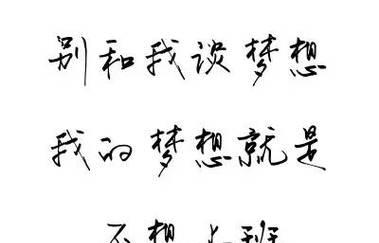 别和我谈梦想
我的梦想就是
不想上班